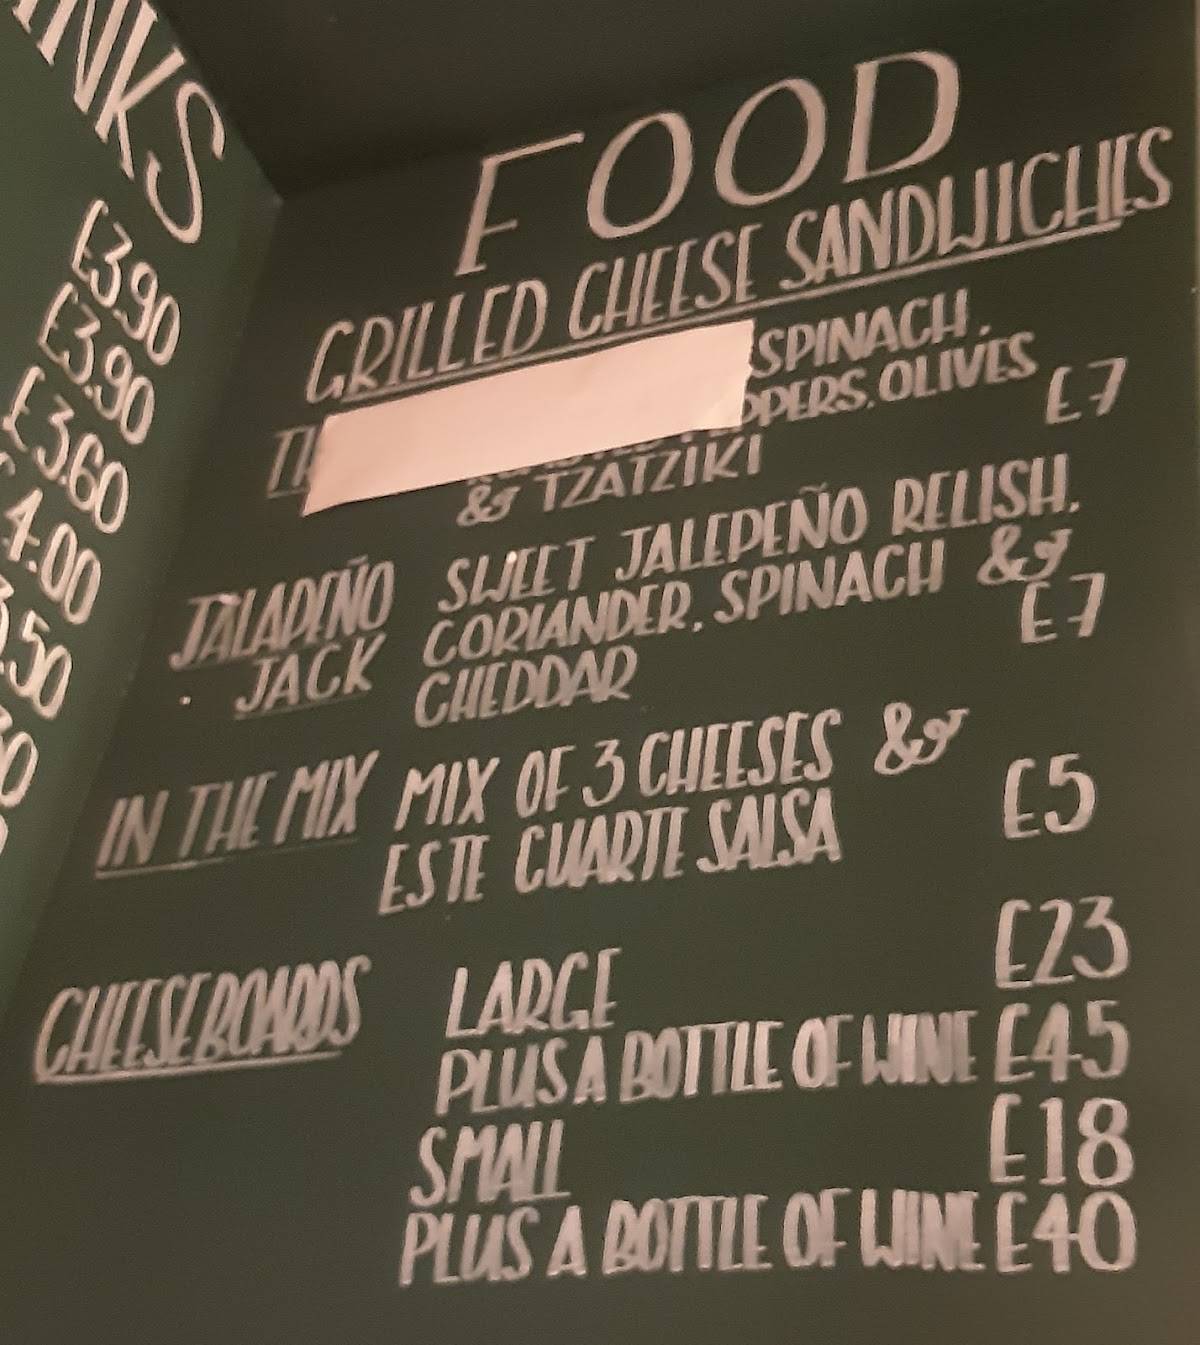 £3.90
£3.90
£3.60
4.00
FOOD
GRILLED CHEESE SANDWICHES
SPINACH,
OLIVES
& TZATZIKI £7
JALAPEÑO SWEET JALEPEÑO RELISH,
JACK CORIANDER, SPINACH &
CHEDDAR £7
IN THE MIX MIX OF 3 CHEESES &
ESTE CUARTE SALSA £5
CHEESEBOARDS LARGE £23
PLUS A BOTTLE OF WINE £45
SMALL £18
PLUS A BOTTLE OF WINE £40